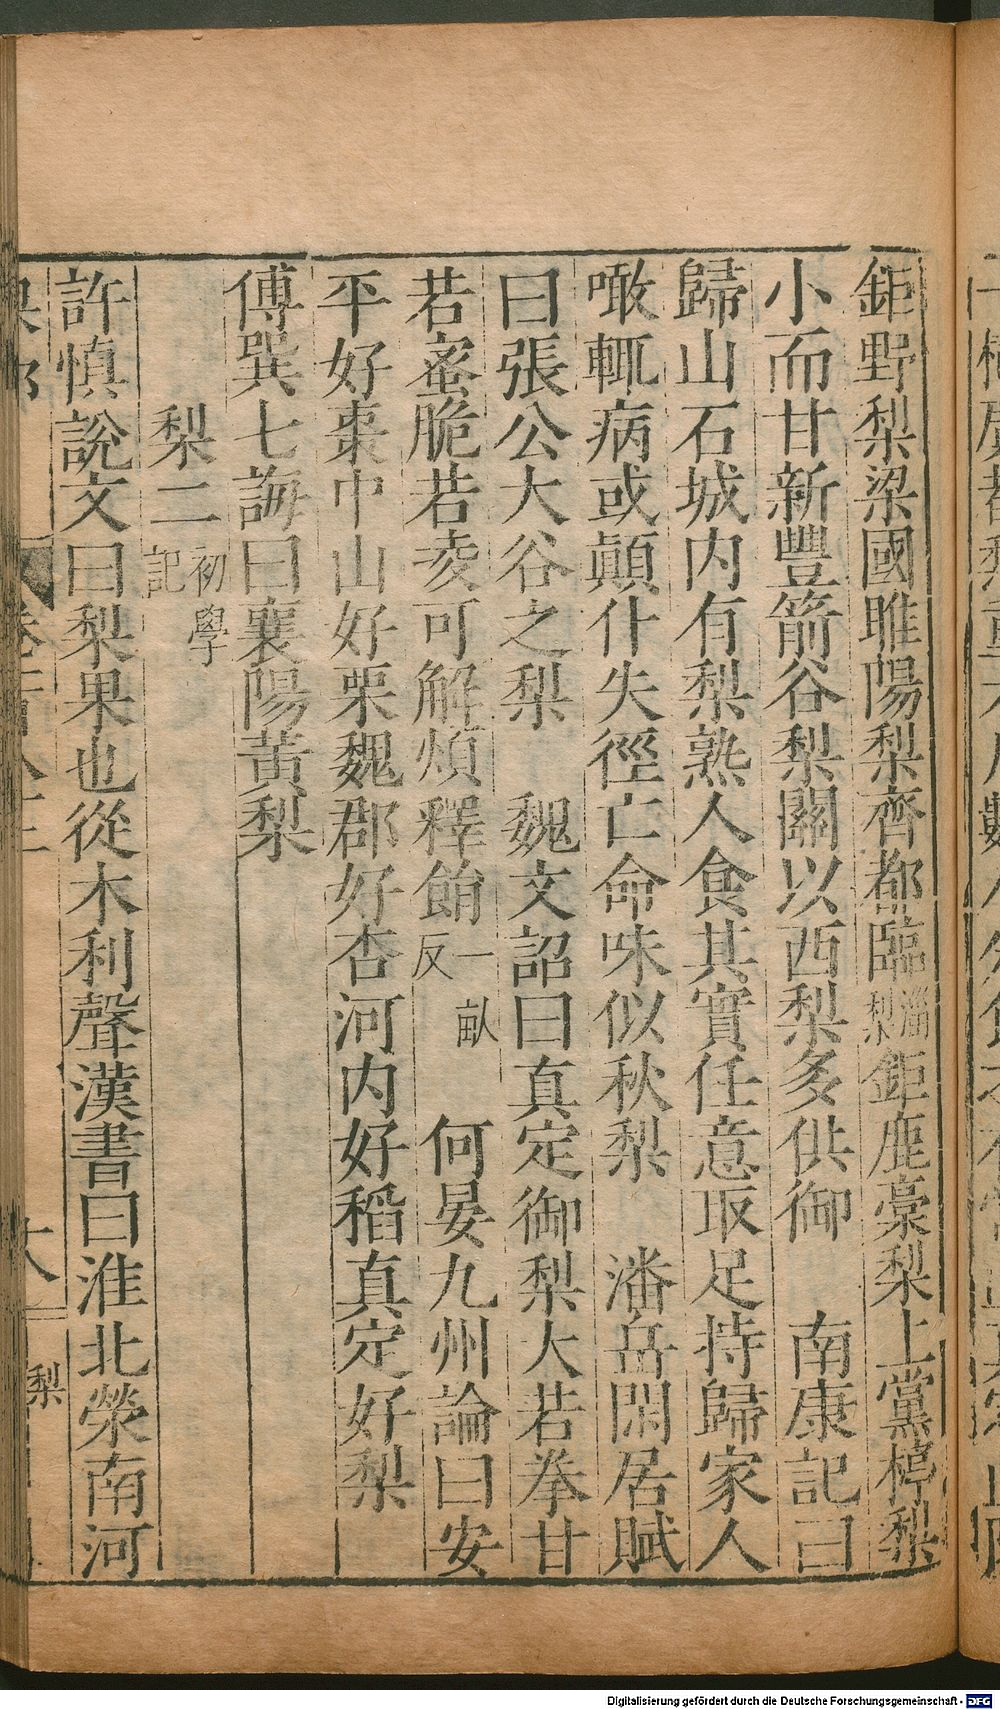 鉅野梨梁國睢陽梨齊都臨淄梨鉅鹿橐梨上黨楟梨
小而甘新豐箭谷梨關以西梨多供御　南康記曰
歸山石城内有梨熟人食其實任意取足持歸家人
噉輒病或顛仆失徑亡命味似秋梨　潘岳閑居賦
曰張公大谷之梨　魏文詔曰真定御梨大若拳甘
若蜜脆若夌可解煩釋餶一畝反　何晏九州論曰安
平好棗中山好栗魏郡好杏河内好稻真定好梨
傅巽七誨曰襄陽黃梨
梨二初學記
許慎說文曰梨果也從木利聲漢書曰淮北滎南河
大八
梨
Digitalisierung gefördert durch die Deutsche Forschungsgemeinschaft - DFG